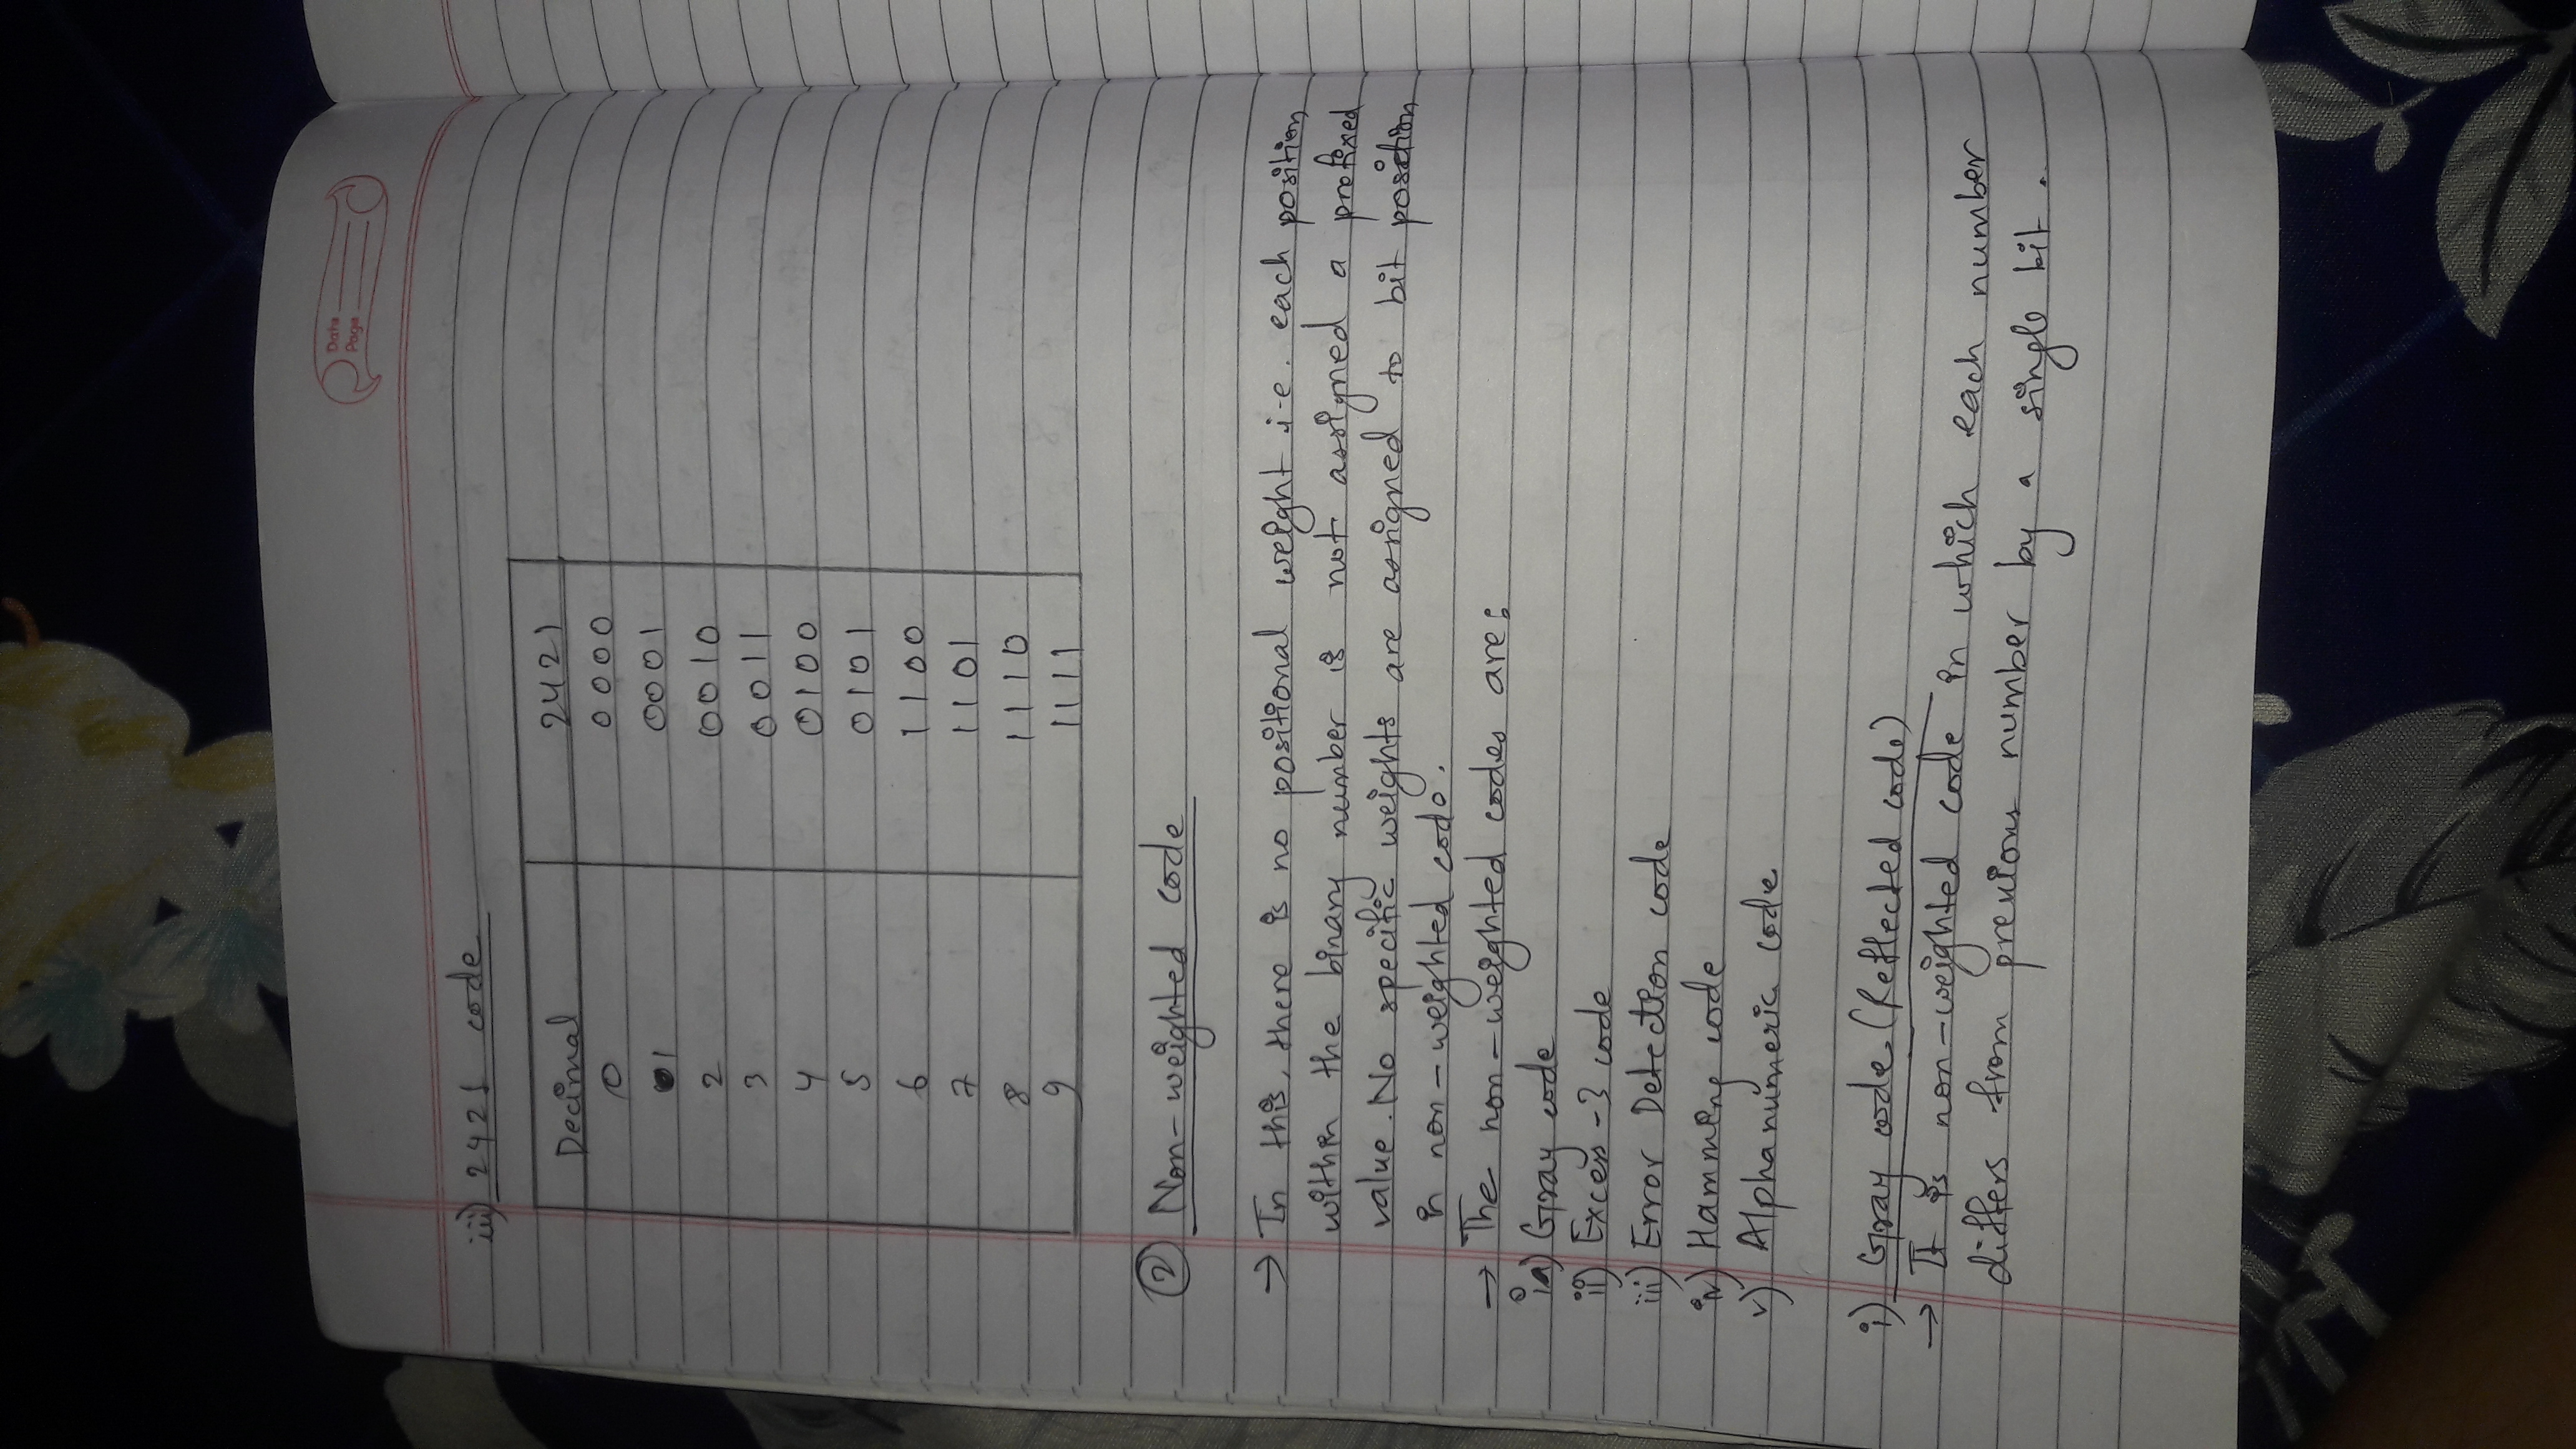 Date
Page
iii) 2421 code
Decimal 2421
0 0000
1 0001
2 0010
3 0011
4 0100
5 0101
6 1100
7 1101
8 1110
9 1111
② Non-weighted code
→ In this, there is no positional weight i.e. each position
within the binary number is not assigned a prefixed
value. No specific weights are assigned to bit position
in non-weighted code.
→ The non-weighted codes are:
i) Gray code
ii) Excess-3 code
iii) Error Detection code
iv) Hamming code
v) Alphanumeric code
i) Gray code (Reflected code)
→ It is non-weighted code in which each number
differs from previous number by a single bit.